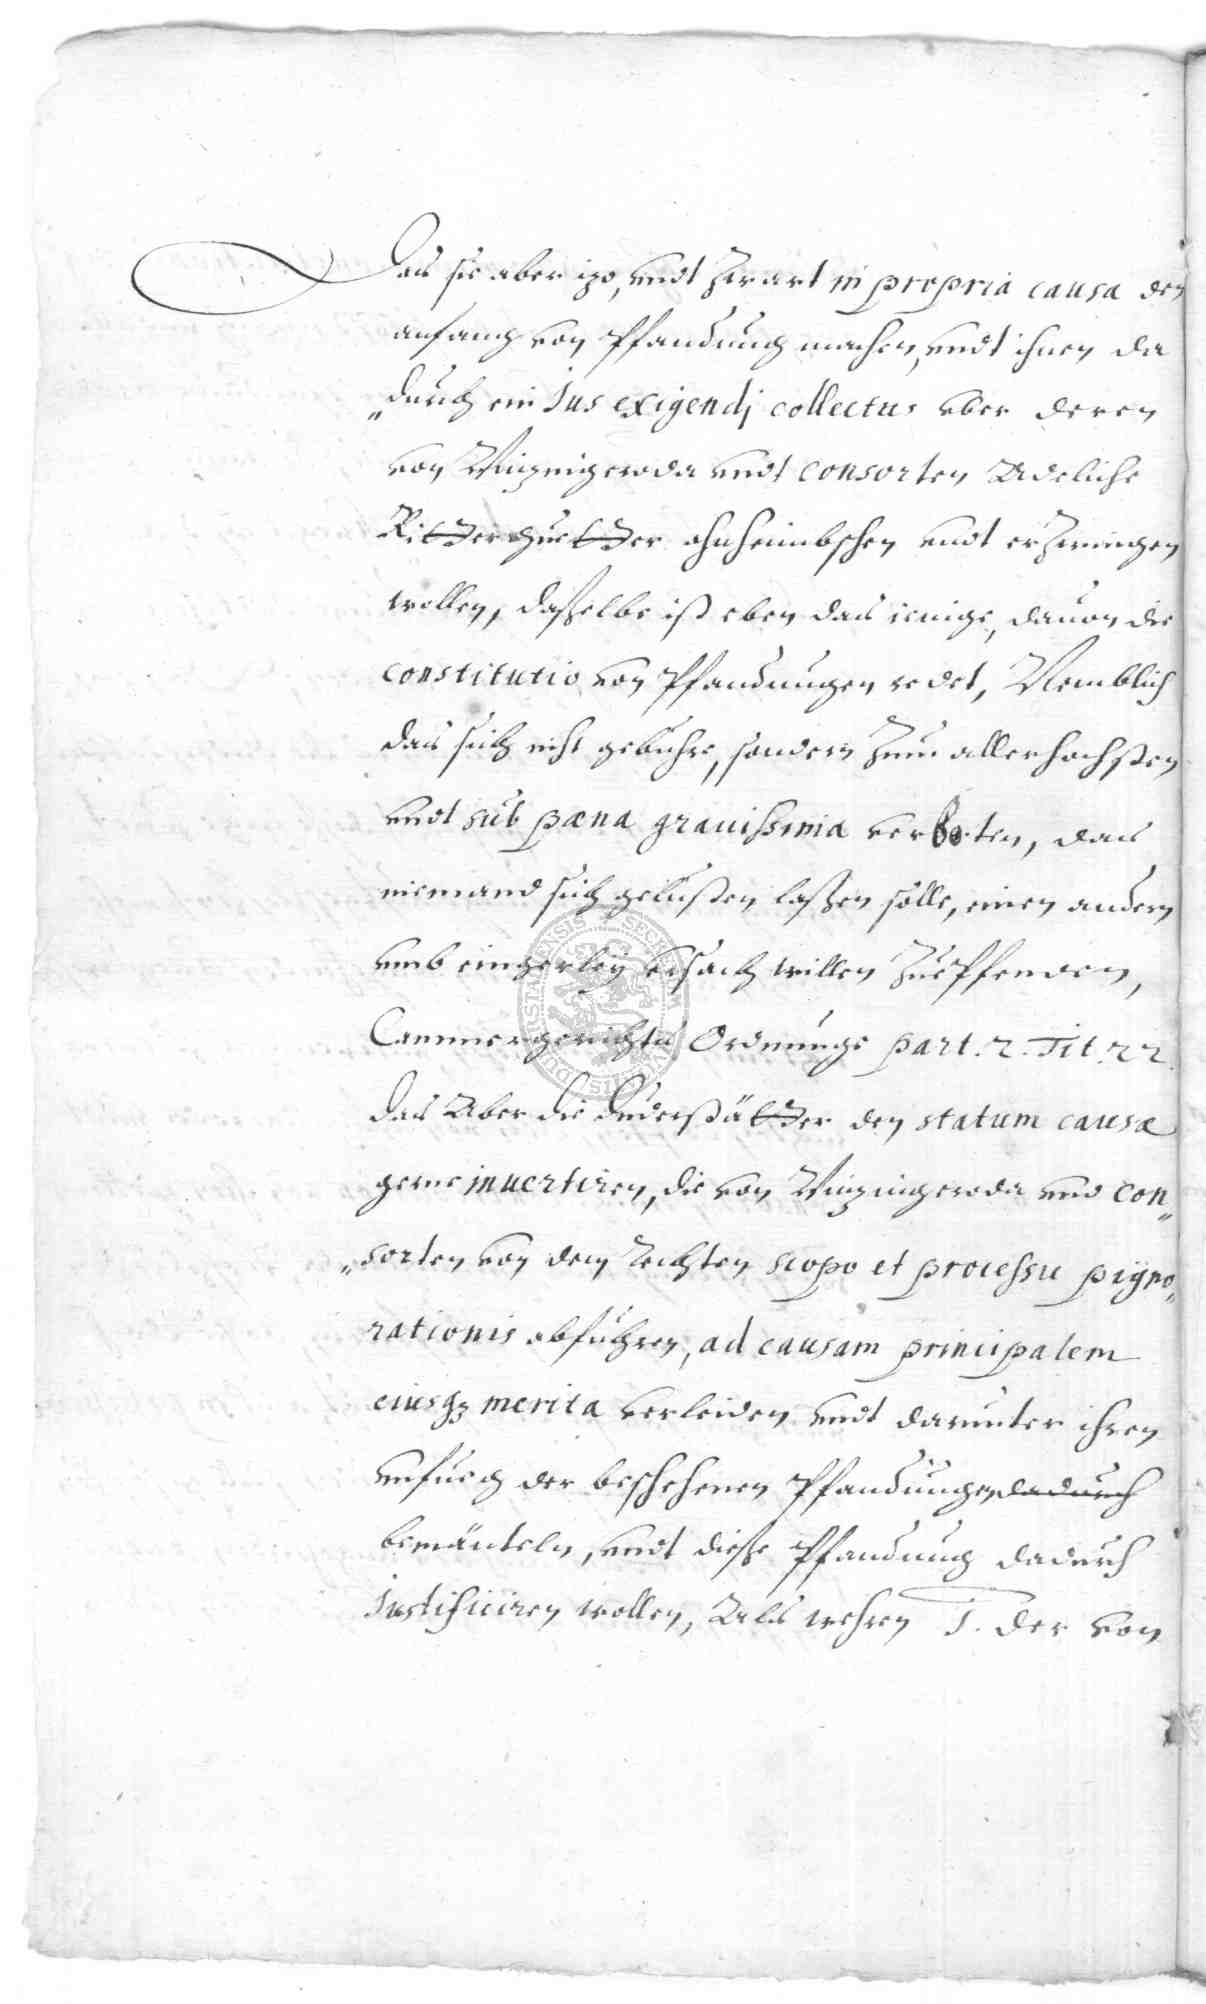 Das sie aber izo, vndt zwart in propria causa den
anfang von Pfandung machen, vndt ihnen da
„durch ein Jus exigendj collectus vber deren
von Winzingeroda vndt consorten Adeliche
Ritterguetter ohnheimbschen vndt erzwingen
wollen, daßelbe ist eben das ienige, dauon die
constitutio von Pfandungen redet, Nemblich
das sich nicht gebuhre, sondern zum allerhochsten
vndt sub pæna grauissima verboten, das
niemand sich gelusten laßen solle, einen andern
vmb eingerley vrsach willen zue Pfenden,
Cammergerichts Ordnunge part. 2. Tit. 22.
Das Aber die Duderstätter den statum causæ
gerne invertiren, die von Winzingeroda vnd con„
„sorten von dem Rechten scopo et processu pigno„
rationis abführen, ad causam principalem
eiusq₃ merita verleiden vndt darunter ihren
vnfueg der beschehenen Pfandungen dadurch
bemänteln, vndt dieße Pfandung dadurch
Justificiren wollen, Als wehren J. der von
SECRETUM
DUDERSTADENSIS